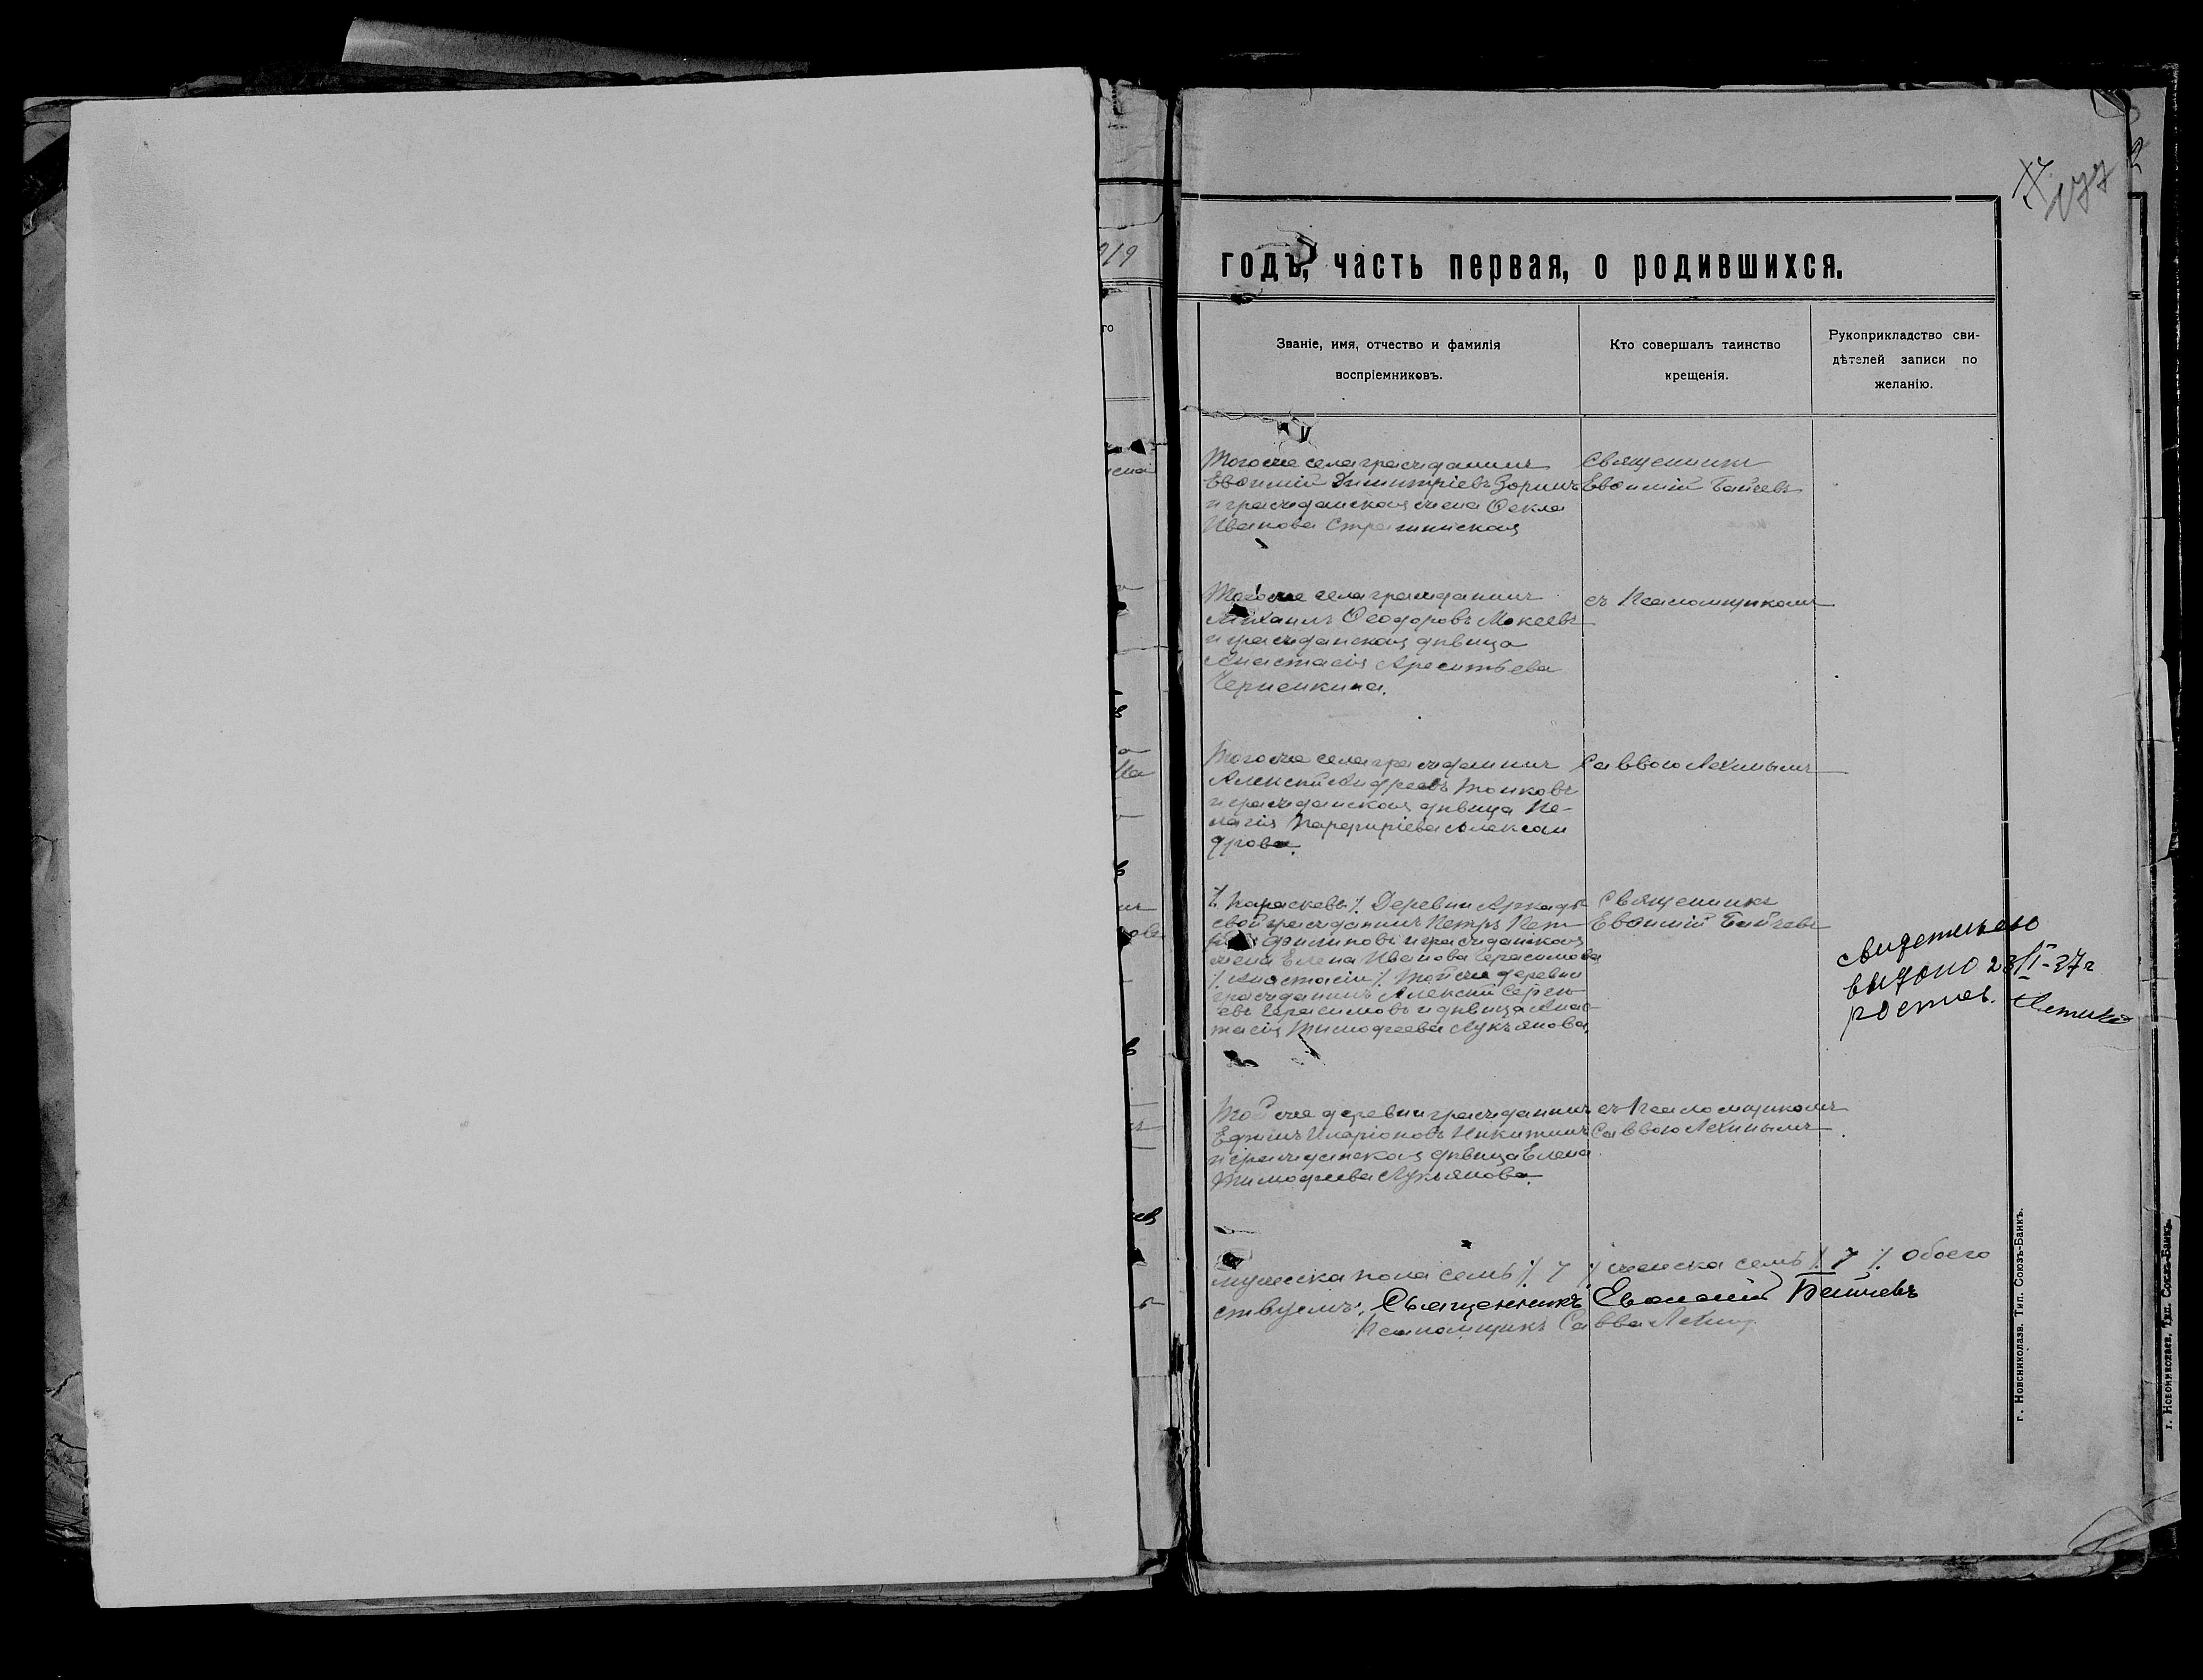 177
919
годъ, часть первая, о родившихся.
Званіе, имя, отчество и фамилія
воспріемниковъ.
Кто совершалъ таинство
крещенія.
Рукоприкладство сви-
дѣтелей записи по
желанію.
Того же села гражданинъ
Евѳимій Димитріевъ Зоринъ
и гражданская жена Ѳекла
Иванова
Священникъ
Евѳимій
Того же села гражданинъ
Михаилъ Ѳеодоровъ Мокеевъ
и гражданская дѣвица
Анастасія
съ Псаломщикомъ
Того же села гражданинъ
Алексѣй Андреевъ
и гражданская дѣвица Пе-
лагія Парфиріева Алексан
дрова.
Саввою Лехинымъ
·/. Параскевъ ·/. Деревни
гражданинъ Петръ Пет-
Филиповъ и гражданская
жена Елена Иванова Герасимова
·/. Анастасіи ·/. Той же деревни
гражданинъ Алексѣй Сергѣ-
евъ Герасимовъ и дѣвица Анас-
тасія Тимофеева Лукъянова.
Священникъ
Евѳимій
свидетельство
выдано 23/II-37 г
Той же деревни гражданинъ
Ефимъ Иларіоновъ Никитинъ
и гражданская дѣвица Елена
Тимофеева Лукъянова.
съ Псаломщикомъ
Саввою Лехинымъ
мужска пола семь ·/. 7 ·/. женска семь ·/. 7 ·/. обоего
ствуемъ: Священникъ Евѳимій
Псаломщикъ Савва Лехинъ
г. Новониколаев. Тип. Союзъ-Банкъ.
г. Новониколаев. Тип. Союзъ-Банкъ.